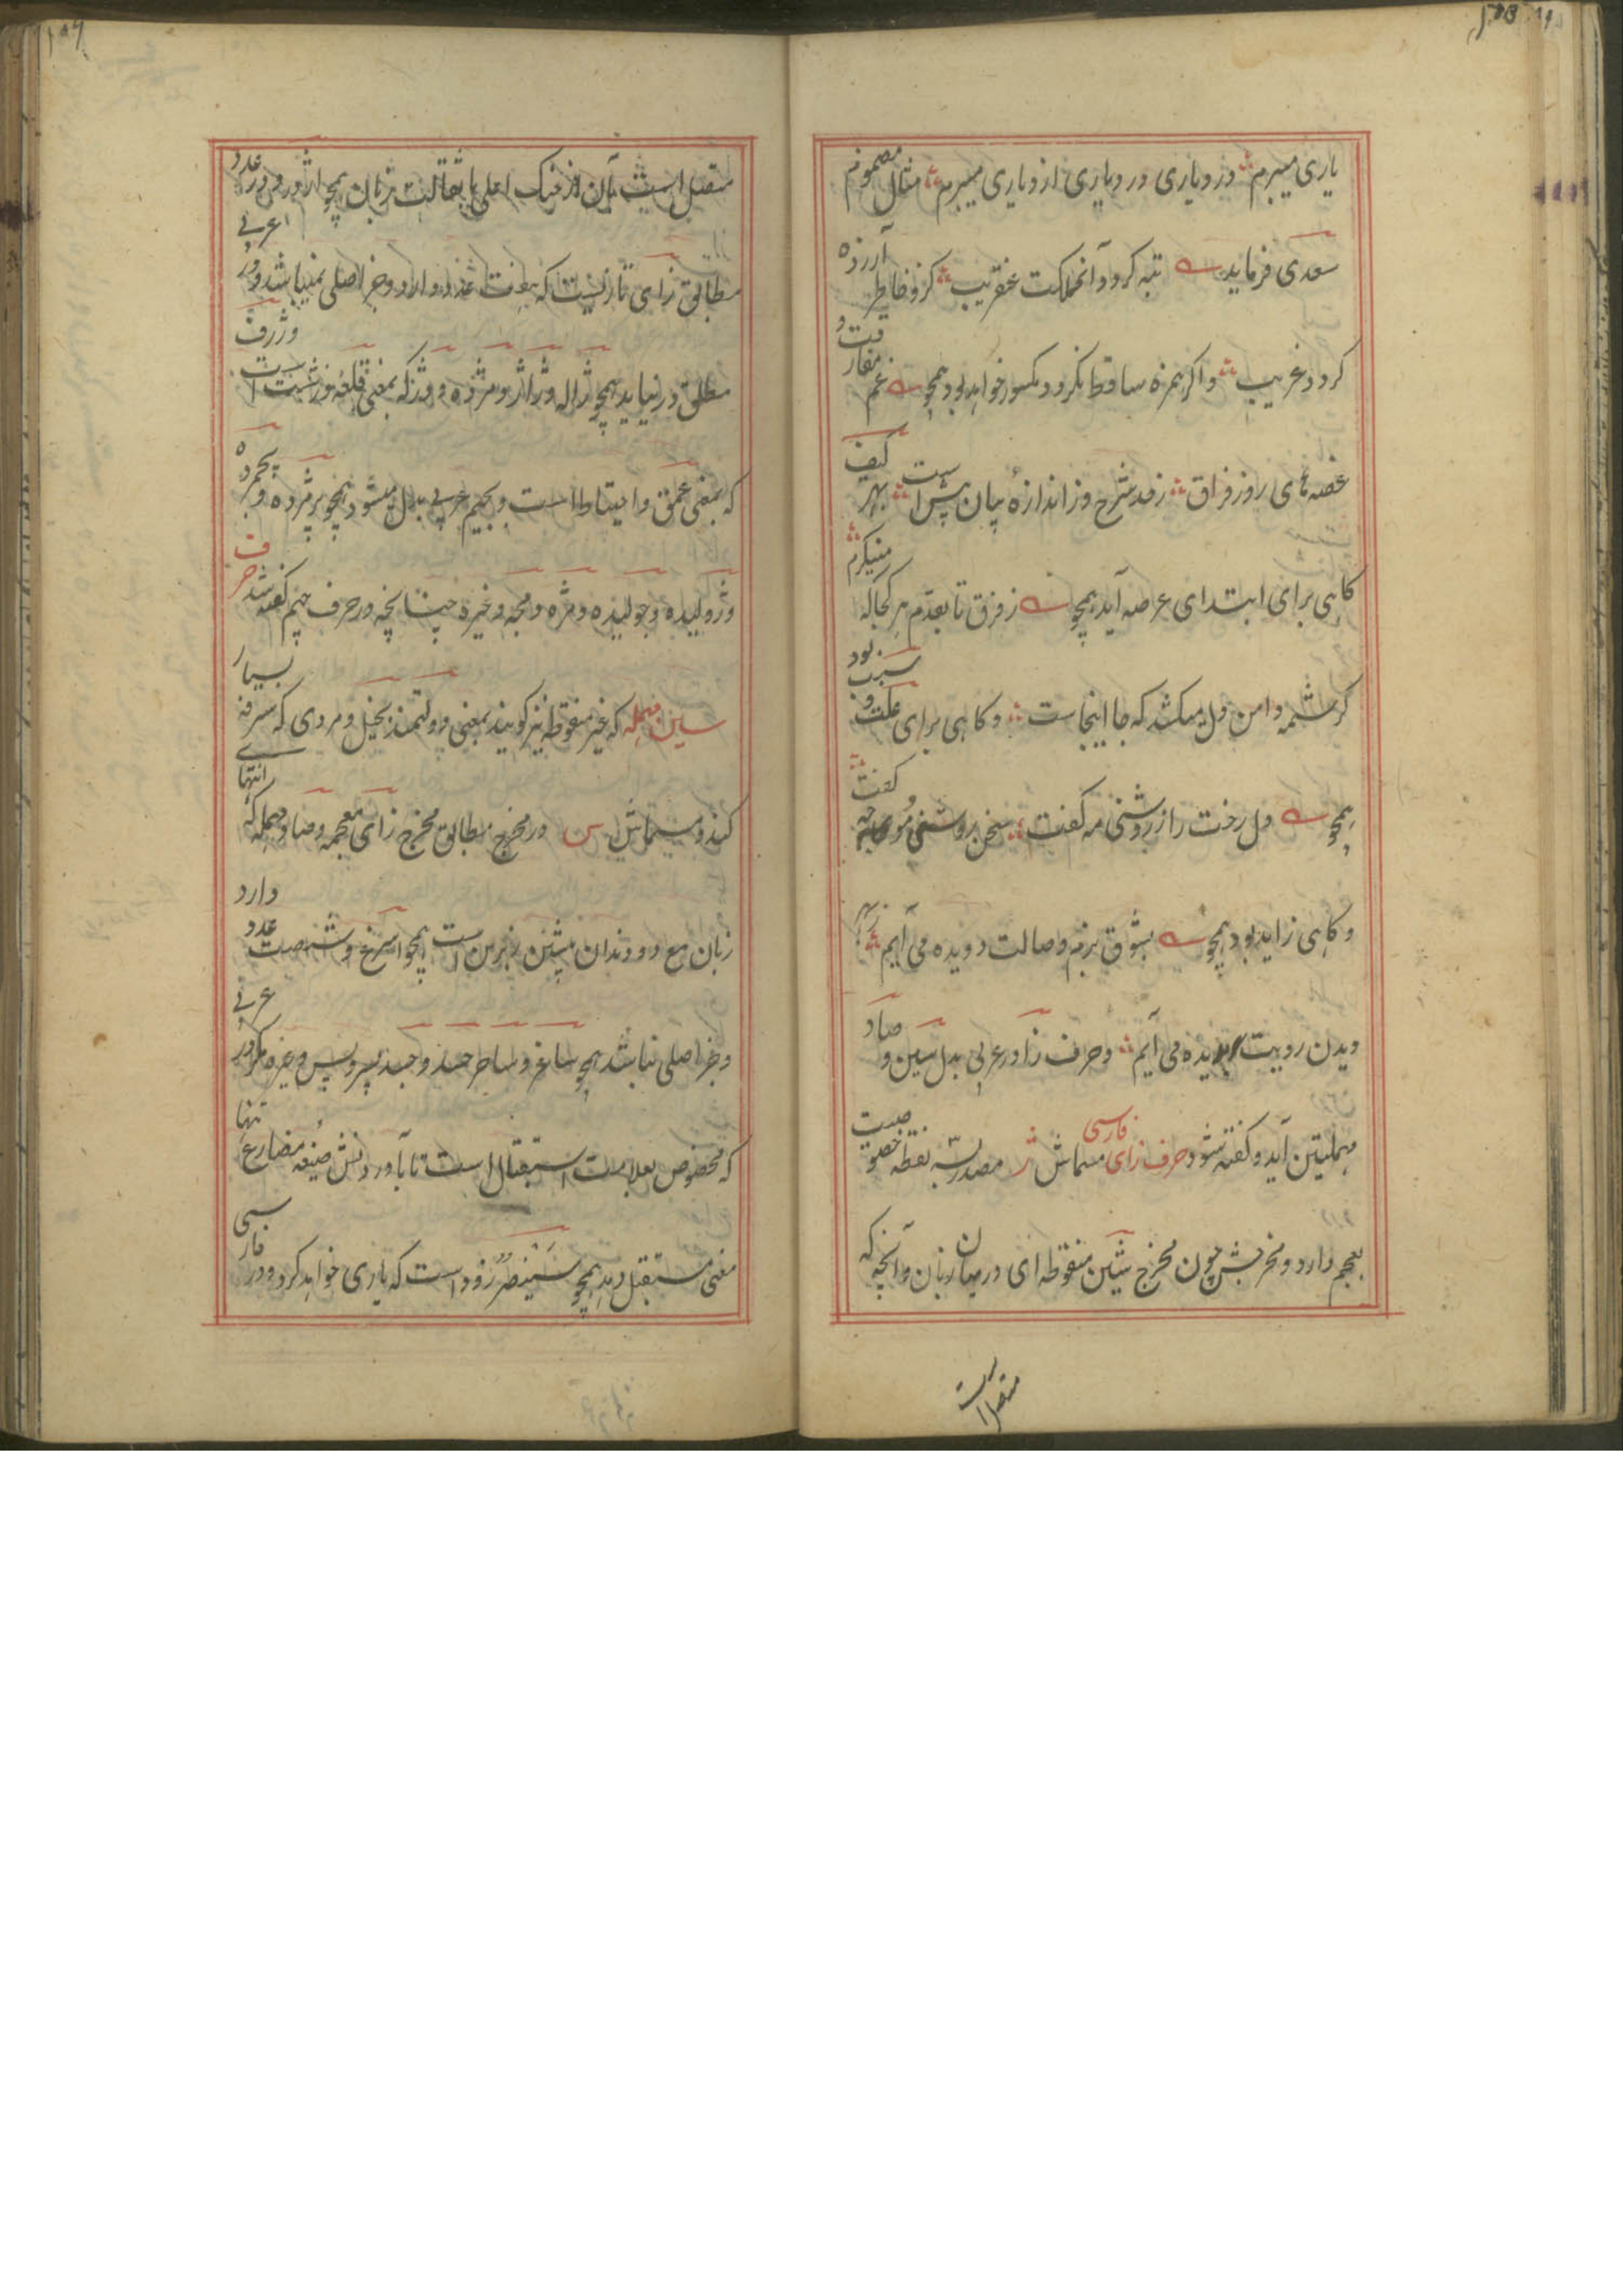 یاری میبرم وز و یاری در و یاری از و یاری میبرم مثال مضموم
سعدی فرماید تبه گردد آنمملکت عنقریب کزو خاطر آزرده
گردد غریب و اگر همزه ساقط نگردد مکسور خواهد بود همچو غم مفارقت و
غصه های روز فراق زحد شرح وز اندازهٔ بیان بیش است بهر کیف
گاهی برای ابتدای عرصه آید همچو ز فرق تا بقدم هر کجا که مینگرم
کرشمه دامن دل میکشد که جا اینجاست و گاهی برای علت و سبب بود
همچو دل رخت را ز روشنی مه گفت سخن روشنی موجه گفت
و گاهی زاید بود همچو بشوق بزم وصالت دویده می آیم
دیدن رویت بدیده می آیم و حرف زا در عربی بدل سین و صاد
مهملتین آید و گفته شود حرف زای فارسی مسماش ژ مصدر بسه نقطه خصوصیت
بعجم دارد و مخرجش چون مخرج شین منقوطه ای در میان زبان و آنچه که
متصل است
متصل است بآن از حنک اعلی با ثقالت زبان همچو اژدر و در عدد
مطابق زای تازیست که هفت عدد دارد و جز اصلی نمیباشد و در عربی
مطلق در نیاید همچو ژاله و ژاژ و مژده و دژ که بمعنی قلعه نوزشتست و ژرف
که بمعنی عمق و احتیاط است و بجیم عربی بدل میشود همچو پژمرده و پجمرده
و ژولیده و جولیده و مژه و مجه و غیره چنانچه در حرف جیم گفته شد حرف
سین مهمله که غیر منقوطه نیز گویند بمعنی دولتمند بخیل و مردی که سرفه بسیار
کند و مسماش س در مخرج مطابق مخرج زای معجمه و صاد مهمله که انتهای
زبان مع دو دندان پیشین زیرین است همچو اسرخ و شصت عدد دارد
و جز اصلی نباشد همچو ساغر و ساحر حسد و جسد پسر و پس و غیره مگر در عربی
که مخصوص بعلامت استقبال است تا بآوردنش صیغه مضارع تنها
معنی مستقبل دهد همچو سَیَنصُرُ زود است که یاری خواهد کرد و در فارسی